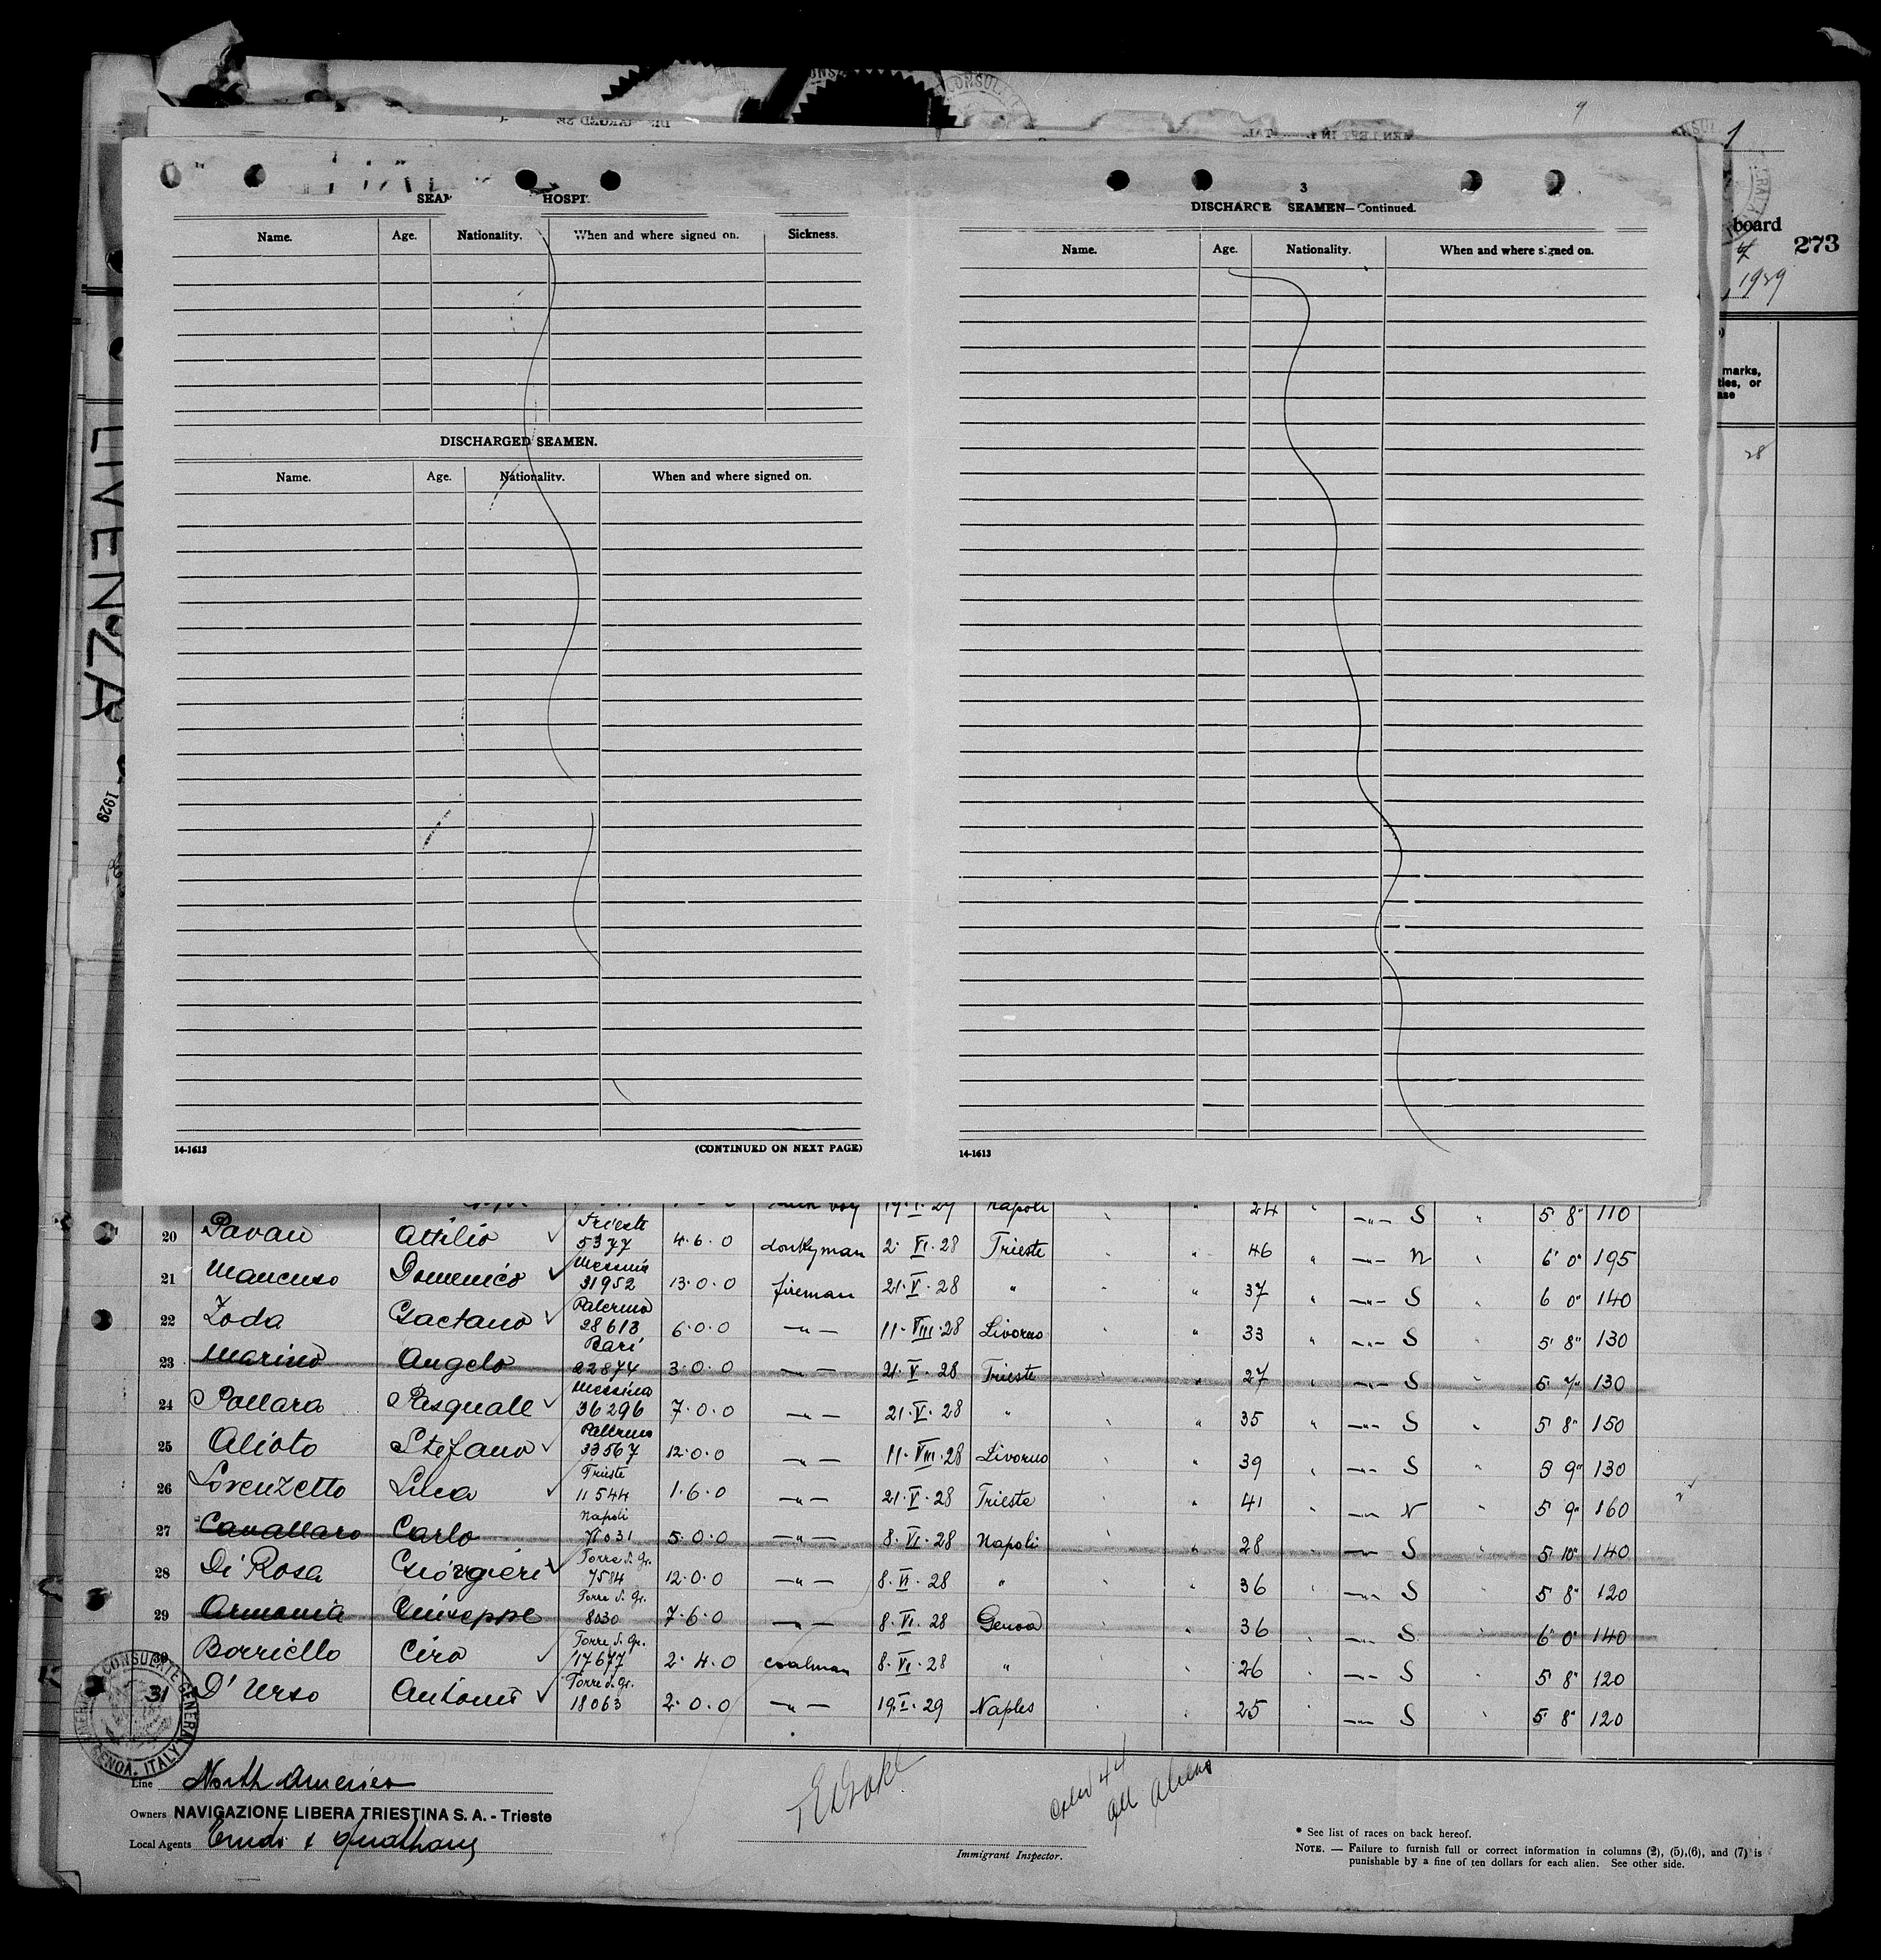 1
board
273
4
1929
SEAM HOSPI
Name. Age. Nationality. When and where signed on. Sickness.
DISCHARGED SEAMEN.
Name. Age. Nationality. When and where signed on.
14-1613 (CONTINUED ON NEXT PAGE)
3
DISCHARGE SEAMEN—Continued.
Name. Age. Nationality. When and where signed on.
14-1613
marks,
ties, or
ase
28
LIVENZA
1929
19·I·29 Napoli 24 S 5 8" 110
20 Pavan Attilio Trieste 5377 4·6·0 donkyman 2·VI·28 Trieste " 46 " —"— N 6' 0" 195
21 Mancuso Domenico Messina 31952 13·0·0 fireman 21·V·28 " " 37 " —"— S 6 0" 140
22 Zoda Gaetano Palermo 28613 6·0·0 —"— 11·VIII·28 Livorno " 33 " —"— S 5' 8" 130
23 Marino Angelo Bari 22874 3·0·0 —"— 21·V·28 Trieste " 27 " —"— S 5 7" 130
24 Pallara Pasquale Messina 36296 7·0·0 —"— 21·V·28 " " 35 " —"— S 5 8" 150
25 Alioto Stefano Pallermo 33567 12·0·0 —"— 11·VIII·28 Livorno " 39 " —"— S 5 9" 130
26 Lorenzetto Luca Trieste 11544 1·6·0 —"— 21·V·28 Trieste " 41 " —"— N 5 9" 160
27 Cavallaro Carlo Napoli 71031 5·0·0 —"— 8·VI·28 Napoli " 28 " —"— S 5' 10" 140
28 Di Rosa Giorgieri Torre d. Gr. 7584 12·0·0 —"— 8·VI·28 " " 36 " —"— S 5 8" 120
29 Armonia Giuseppe Torre d. Gr. 8030 7·6·0 —"— 8·VI·28 Genoa " 36 " —"— S 6' 0" 140
30 Borriello Ciro Torre d. Gr. 17677 2·4·0 coalman 8·VI·28 " " 26 " —"— S 5 8" 120
31 D'Urso Antonio Torre d. Gr. 18063 2·0·0 —"— 19·I·29 Naples " 25 " —"— S 5 8" 120
CONSULATE GENERAL
GENOA, ITALY
Line North America
Owners NAVIGAZIONE LIBERA TRIESTINA S. A. - Trieste
Local Agents
44
all aliens
Immigrant Inspector.
* See list of races on back hereof.
NOTE. — Failure to furnish full or correct information in columns (2), (5),(6), and (7) is
punishable by a fine of ten dollars for each alien. See other side.